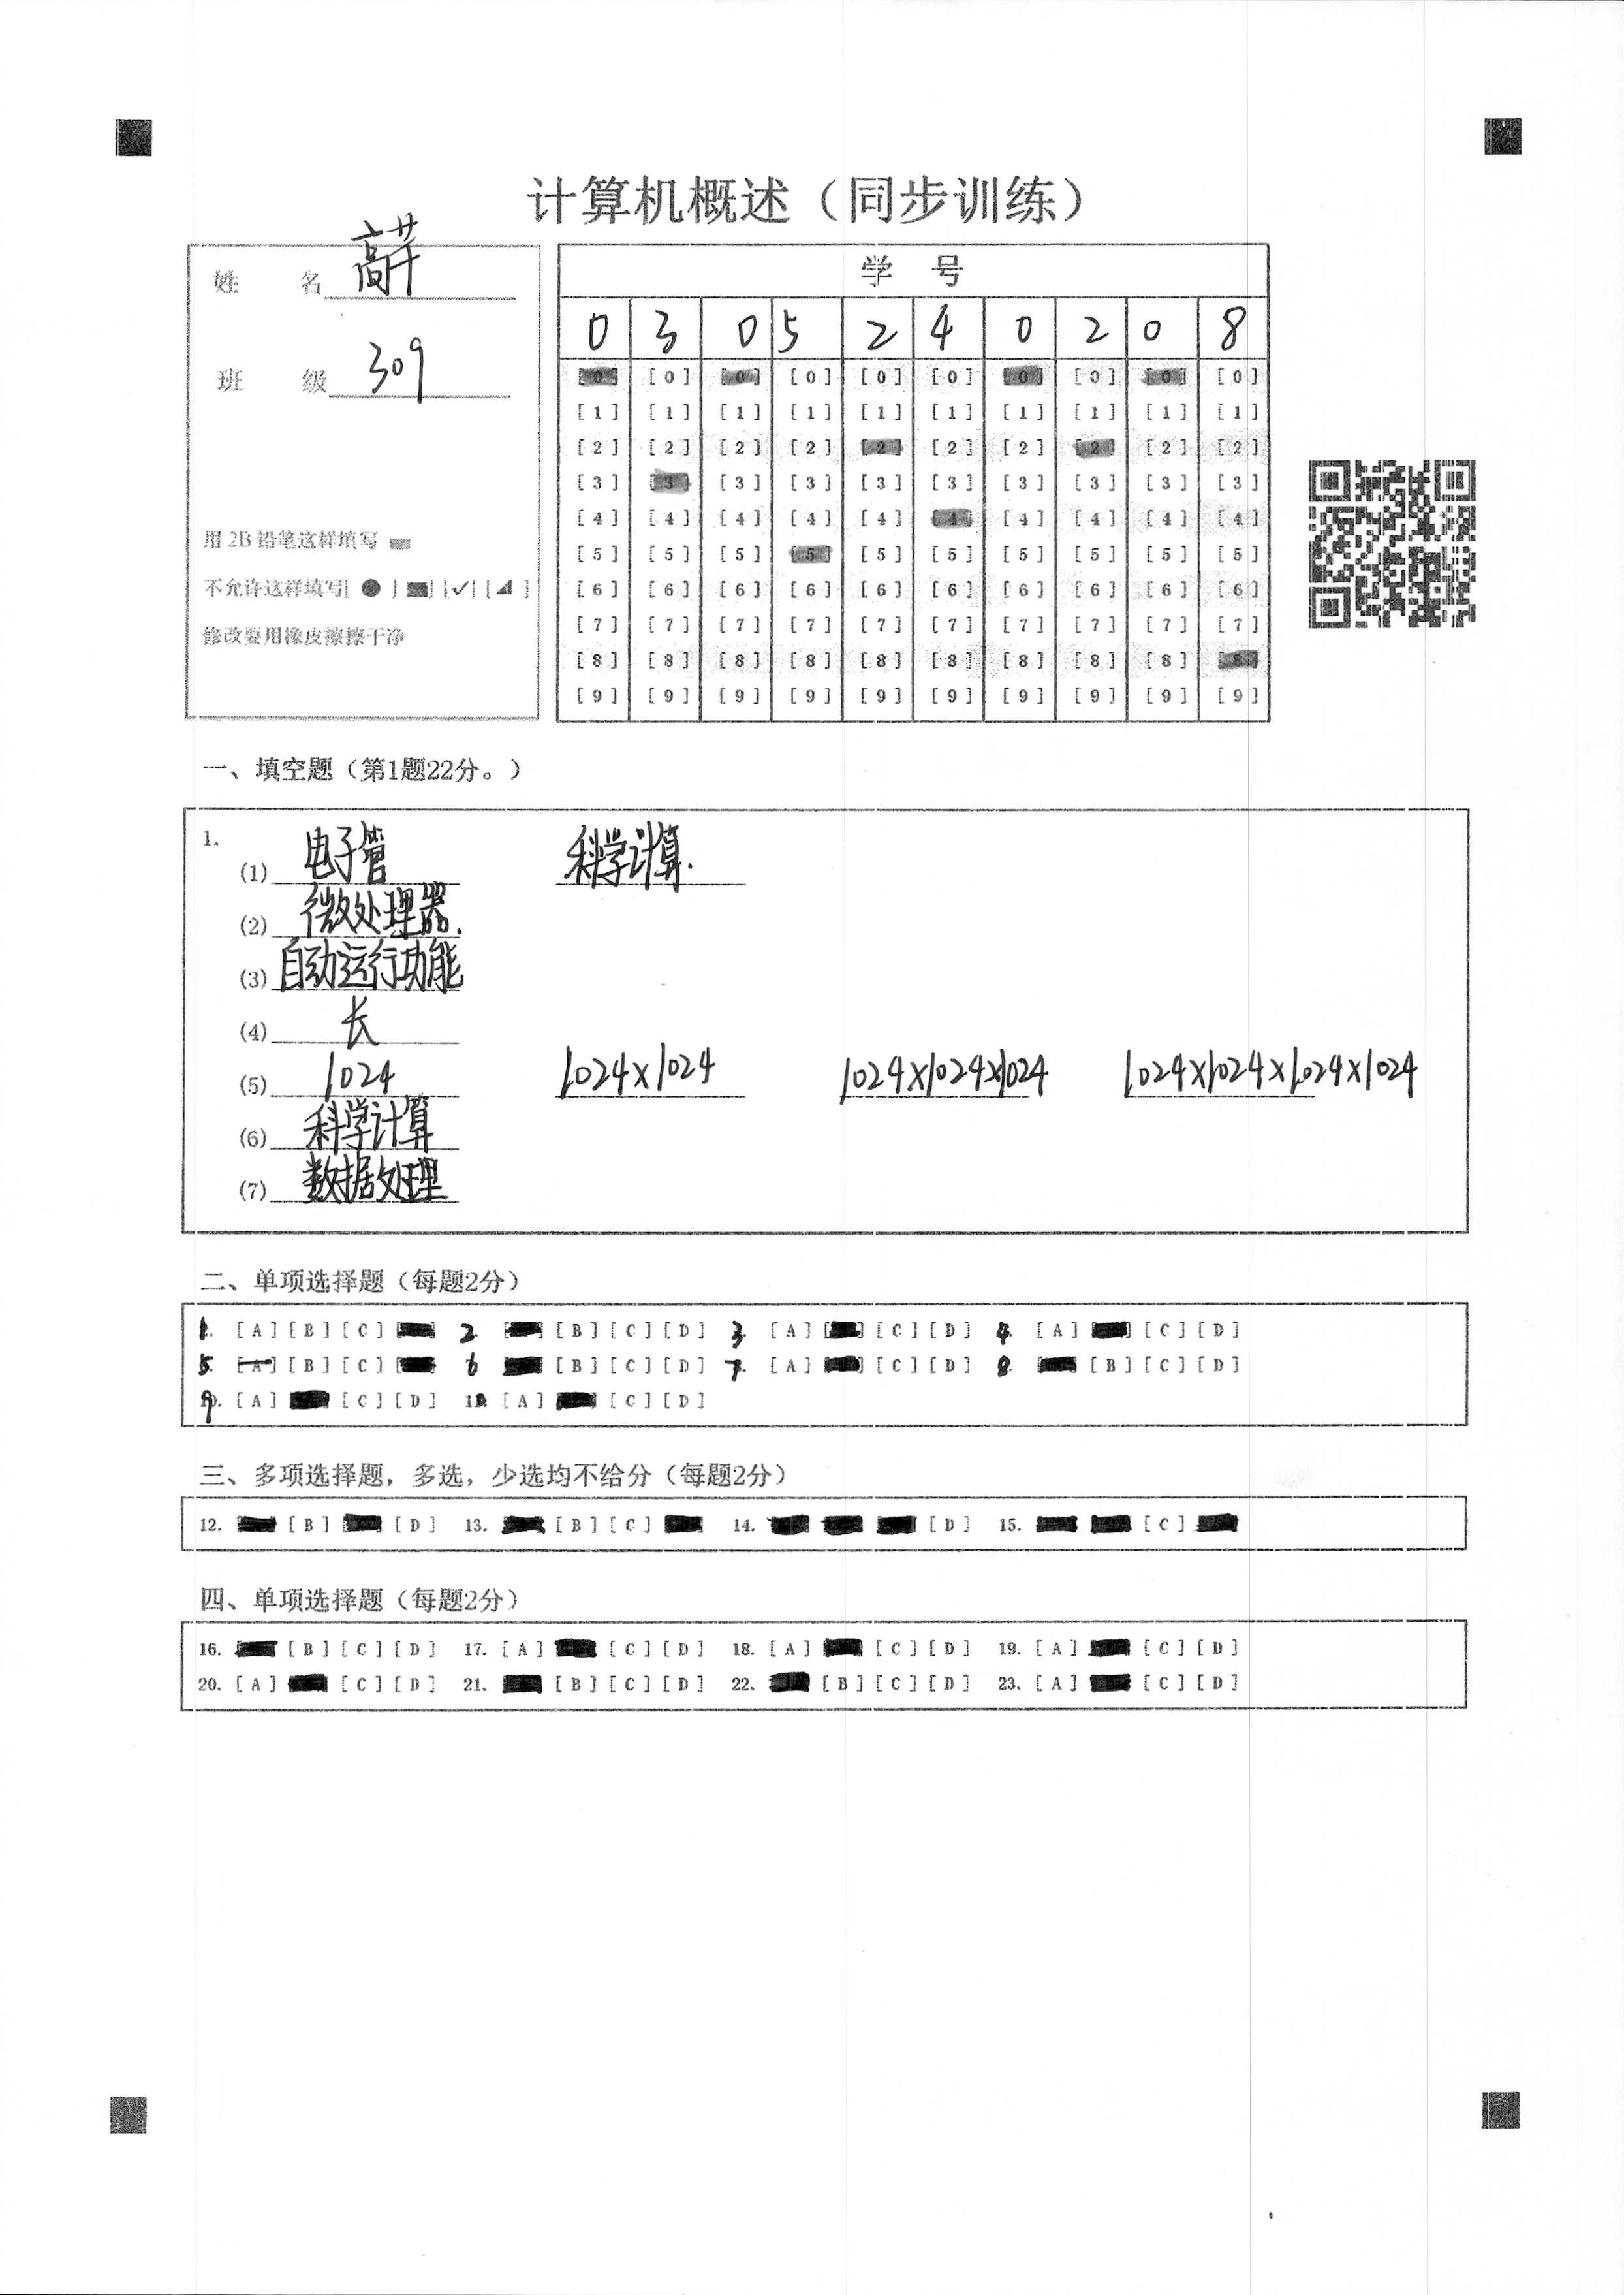 计算机概述（同步训练）
姓 名 高芊
班 级 309
用 2B 铅笔这样填写
不允许这样填写[ ● ] [✓] [◢]
修改要用橡皮擦擦干净
学 号
0 3 0 5 2 4 0 2 0 8
[0] [0] [0] [0] [0] [0] [0] [0] [0] [0]
[1] [1] [1] [1] [1] [1] [1] [1] [1] [1]
[2] [2] [2] [2] [2] [2] [2] [2] [2] [2]
[3] [3] [3] [3] [3] [3] [3] [3] [3] [3]
[4] [4] [4] [4] [4] [4] [4] [4] [4] [4]
[5] [5] [5] [5] [5] [5] [5] [5] [5] [5]
[6] [6] [6] [6] [6] [6] [6] [6] [6] [6]
[7] [7] [7] [7] [7] [7] [7] [7] [7] [7]
[8] [8] [8] [8] [8] [8] [8] [8] [8] [8]
[9] [9] [9] [9] [9] [9] [9] [9] [9] [9]
一、填空题（第1题22分。）
1.
(1) 电子管 科学计算.
(2) 微处理器.
(3) 自动运行功能
(4) 长
(5) 1024 1024×1024 1024×1024×1024 1024×1024×1024×1024
(6) 科学计算
(7) 数据处理
二、单项选择题（每题2分）
1. [A] [B] [C] 2. [B] [C] [D] 3. [A] [C] [D] 4. [A] [C] [D]
5. [A] [B] [C] 6 [B] [C] [D] 7. [A] [C] [D] 8. [B] [C] [D]
9. [A] [C] [D] 1 [A] [C] [D]
三、多项选择题，多选，少选均不给分（每题2分）
12. [B] [D] 13. [B] [C] 14. [D] 15. [C]
四、单项选择题（每题2分）
16. [B] [C] [D] 17. [A] [C] [D] 18. [A] [C] [D] 19. [A] [C] [D]
20. [A] [C] [D] 21. [B] [C] [D] 22. [B] [C] [D] 23. [A] [C] [D]